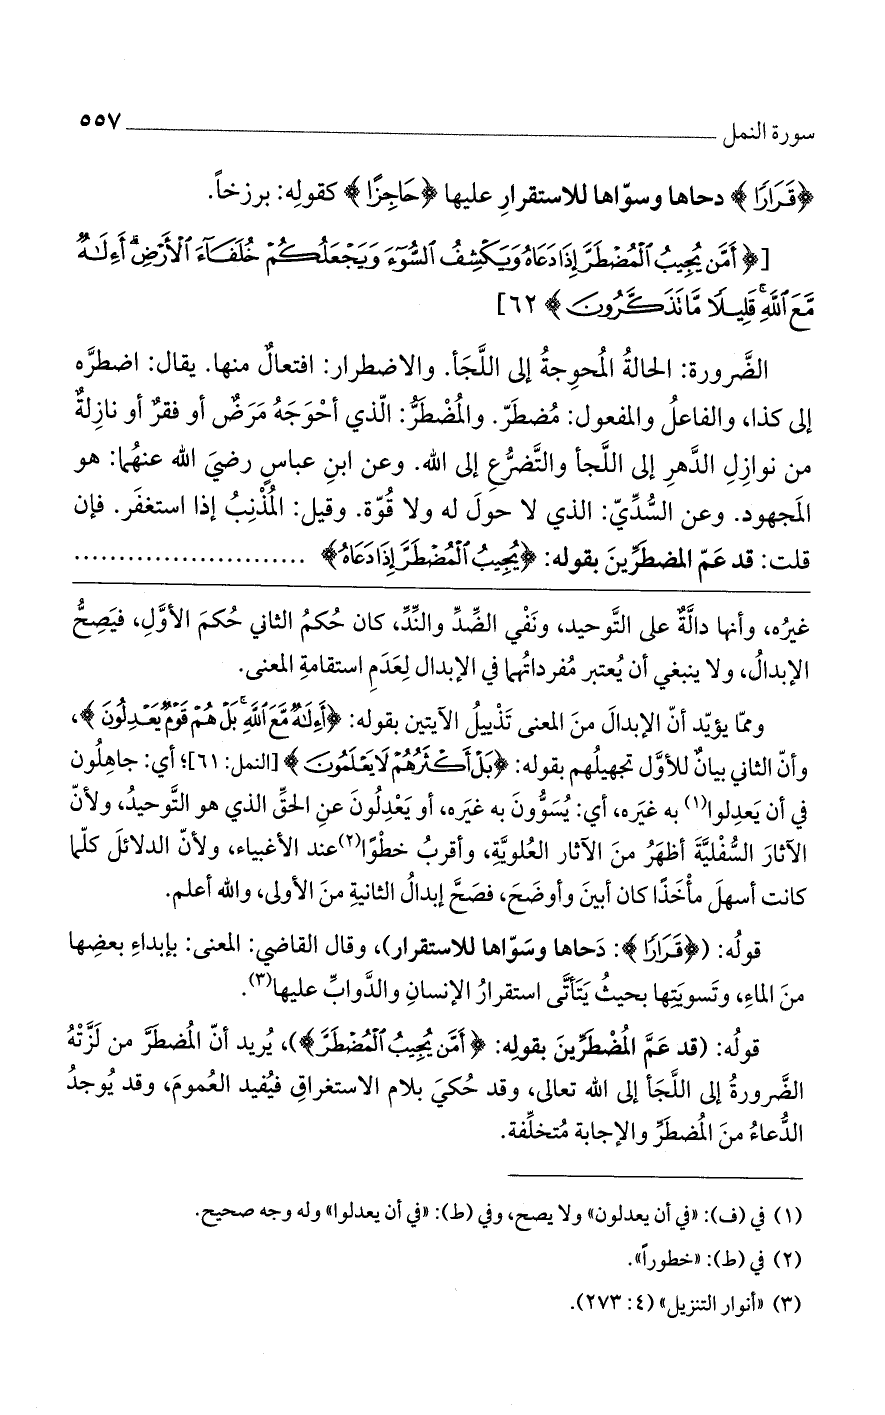 سورة النمل ٥٥٧
﴿قَرَارًا﴾ دحاها وسوّاها للاستقرارِ عليها ﴿حَاجِزًا﴾ كقولِه: برزخاً.
[﴿أَمَّن يُجِيبُ ٱلْمُضْطَرَّ إِذَا دَعَاهُ وَيَكْشِفُ ٱلسُّوٓءَ وَيَجْعَلُكُمْ خُلَفَآءَ ٱلْأَرْضِ ۗ أَءِلَٰهٌ
مَّعَ ٱللَّهِ ۚ قَلِيلًا مَّا تَذَكَّرُونَ﴾ ٦٢]
الضَّرورة: الحالةُ المُحوِجةُ إلى اللَّجأ. والاضطرار: افتعالٌ منها. يقال: اضطرَّه
إلى كذا، والفاعلُ والمفعول: مُضطَرّ. والمُضْطَرُّ: الّذي أحْوَجَهُ مَرَضٌ أو فقرٌ أو نازِلةٌ
من نوازِلِ الدَّهرِ إلى اللَّجأ والتَّضرُّعِ إلى الله. وعن ابنِ عباسٍ رضيَ الله عنهُما: هو
المَجهود. وعن السُّدِّيّ: الذي لا حولَ له ولا قُوّة. وقيل: المُذْنِبُ إذا استغفَر. فإن
قلت: قد عَمّ المضطرِّينَ بقوله: ﴿يُجِيبُ ٱلْمُضْطَرَّ إِذَا دَعَاهُ﴾ ........................
غيرُه، وأنها دالَّةٌ على التَّوحيد، ونَفْيِ الضِّدِّ والنِّدِّ، كان حُكمُ الثاني حُكمَ الأوَّلِ، فيَصِحُّ
الإبدالُ، ولا ينبغي أن يُعتبر مُفرداتُهما في الإبدال لِعَدَمِ استقامةِ المعنى.
وممّا يؤيّد أنّ الإبدالَ منَ المعنى تَذْييلُ الآيتين بقوله: ﴿أَءِلَٰهٌ مَّعَ ٱللَّهِ ۚ بَلْ هُمْ قَوْمٌ يَعْدِلُونَ﴾،
وأنّ الثاني بيانٌ للأوَّل تجهيلُهم بقوله: ﴿بَلْ أَكْثَرُهُمْ لَا يَعْلَمُونَ﴾ [النمل: ٦١]؛ أي: جاهِلُون
في أن يَعدِلوا(١) به غيرَه، أي: يُسَوُّونَ به غيرَه، أو يَعْدِلُونَ عنِ الحقِّ الذي هو التَّوحيدُ، ولأنّ
الآثارَ السُّفْليَّةَ أظهَرُ منَ الآثار العُلويَّةِ، وأقربُ خطْوًا(٢) عند الأغبياء، ولأنّ الدلائلَ كلّما
كانت أسهلَ مأْخَذًا كان أبينَ وأوضَحَ، فصَحَّ إبدالُ الثانيةِ منَ الأولى، والله أعلم.
قولُه: (﴿قَرَارًا﴾: دَحاها وسَوّاها للاستقرار)، وقال القاضي: المعنى: بإبداءِ بعضِها
منَ الماءِ، وتَسويَتِها بحيثُ يَتَأتَّى استقرارُ الإنسانِ والدَّوابِّ عليها(٣).
قولُه: (قد عَمَّ المُضْطَرِّينَ بقولِه: ﴿أَمَّن يُجِيبُ ٱلْمُضْطَرَّ﴾)، يُريد أنّ المُضطَرَّ من لَزَّتْهُ
الضَّرورةُ إلى اللَّجَأ إلى الله تعالى، وقد حُكيَ بلام الاستغراقِ فيُفيد العُمومَ، وقد يُوجدُ
الدُّعاءُ منَ المُضطَرِّ والإجابة مُتخلِّفة.
(١) في (ف): «في أن يعدلون» ولا يصح، وفي (ط): «في أن يعدلوا» وله وجه صحيح.
(٢) في (ط): «خطوراً».
(٣) «أنوار التنزيل» (٤: ٢٧٣).